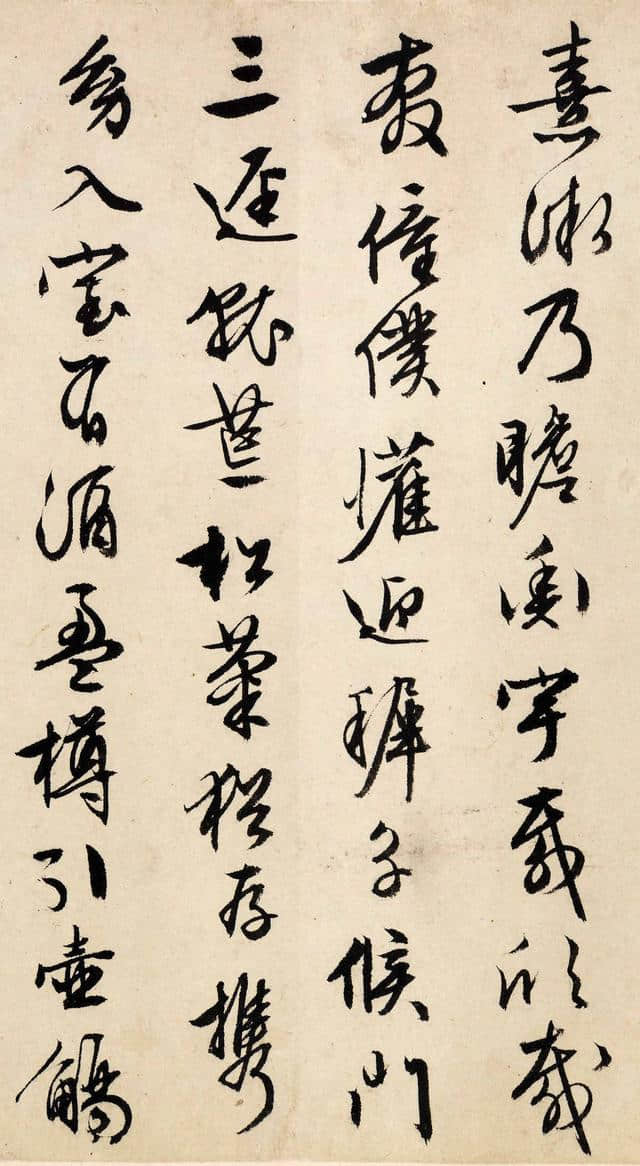 熹微乃瞻衡宇載欣載
奔僮僕懽迎穉子候門
三逕就荒松菊猶存携
幼入室有酒盈樽引壺觴